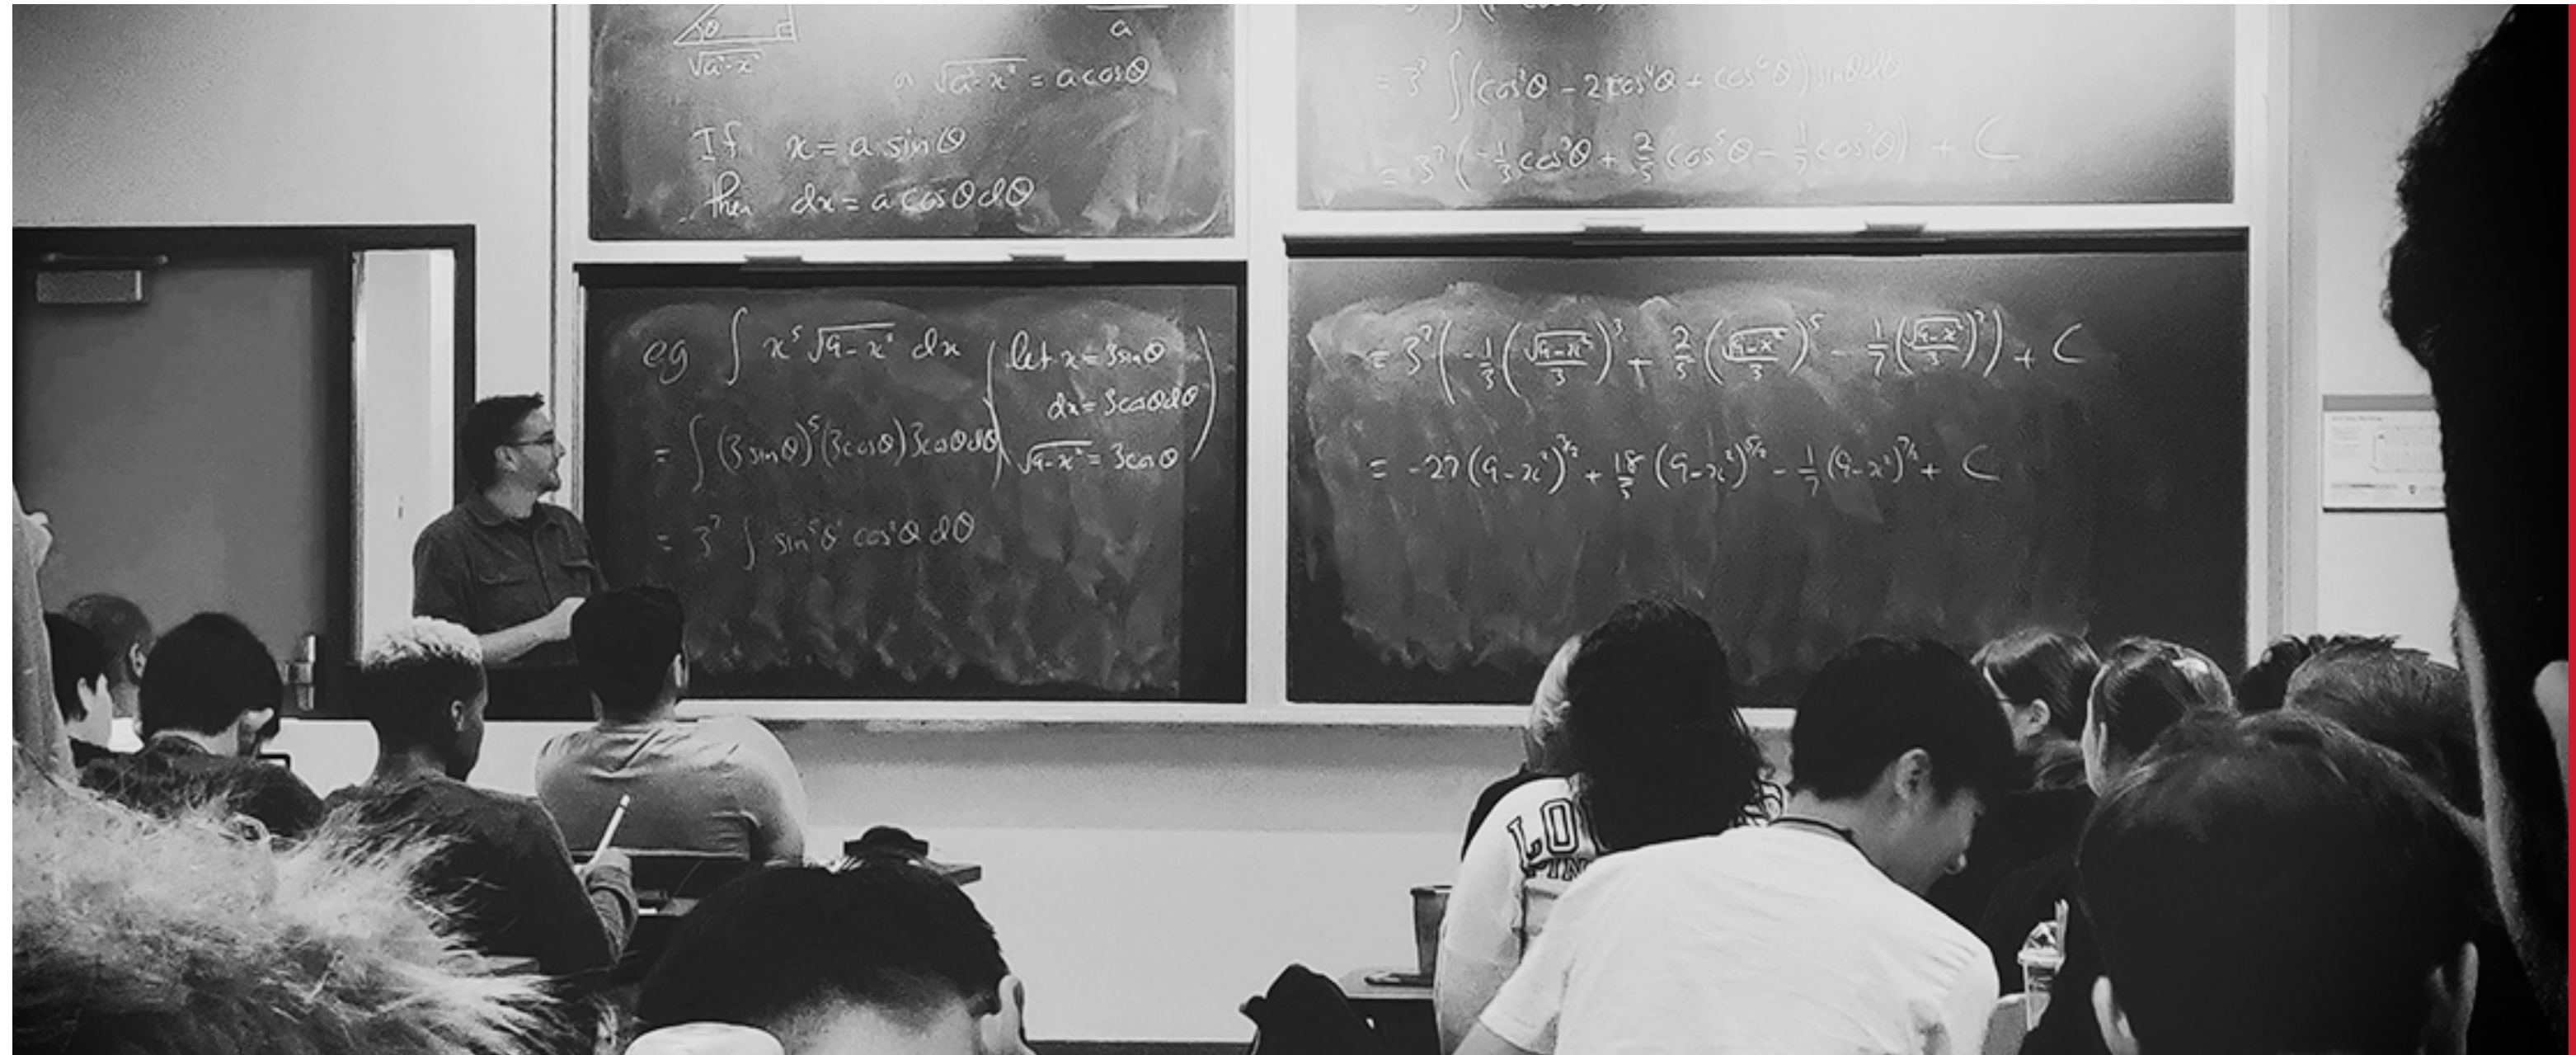 θ
√a²-x²
a
a √a²-x² = a cosθ
If x = a sinθ
then dx = a cosθ dθ
eg ∫ x⁵ √9-x² dx
(let x = 3sinθ
dx = 3cosθdθ
√9-x² = 3cosθ)
= ∫ (3sinθ)⁵(3cosθ)3cosθdθ
= 3⁷ ∫ sin⁵θ cos²θ dθ
= 3⁷ ∫(cos²θ - 2cos⁴θ + cos⁶θ) sinθdθ
= 3⁷(-1/3 cos³θ + 2/5 cos⁵θ - 1/7 cos⁷θ) + C
= 3⁷(-1/3(√9-x²/3)³ + 2/5(√9-x²/3)⁵ - 1/7(√9-x²/3)⁷) + C
= -27(9-x²)^3/2 + 18/5(9-x²)^5/2 - 1/7(9-x²)^7/2 + C
LO